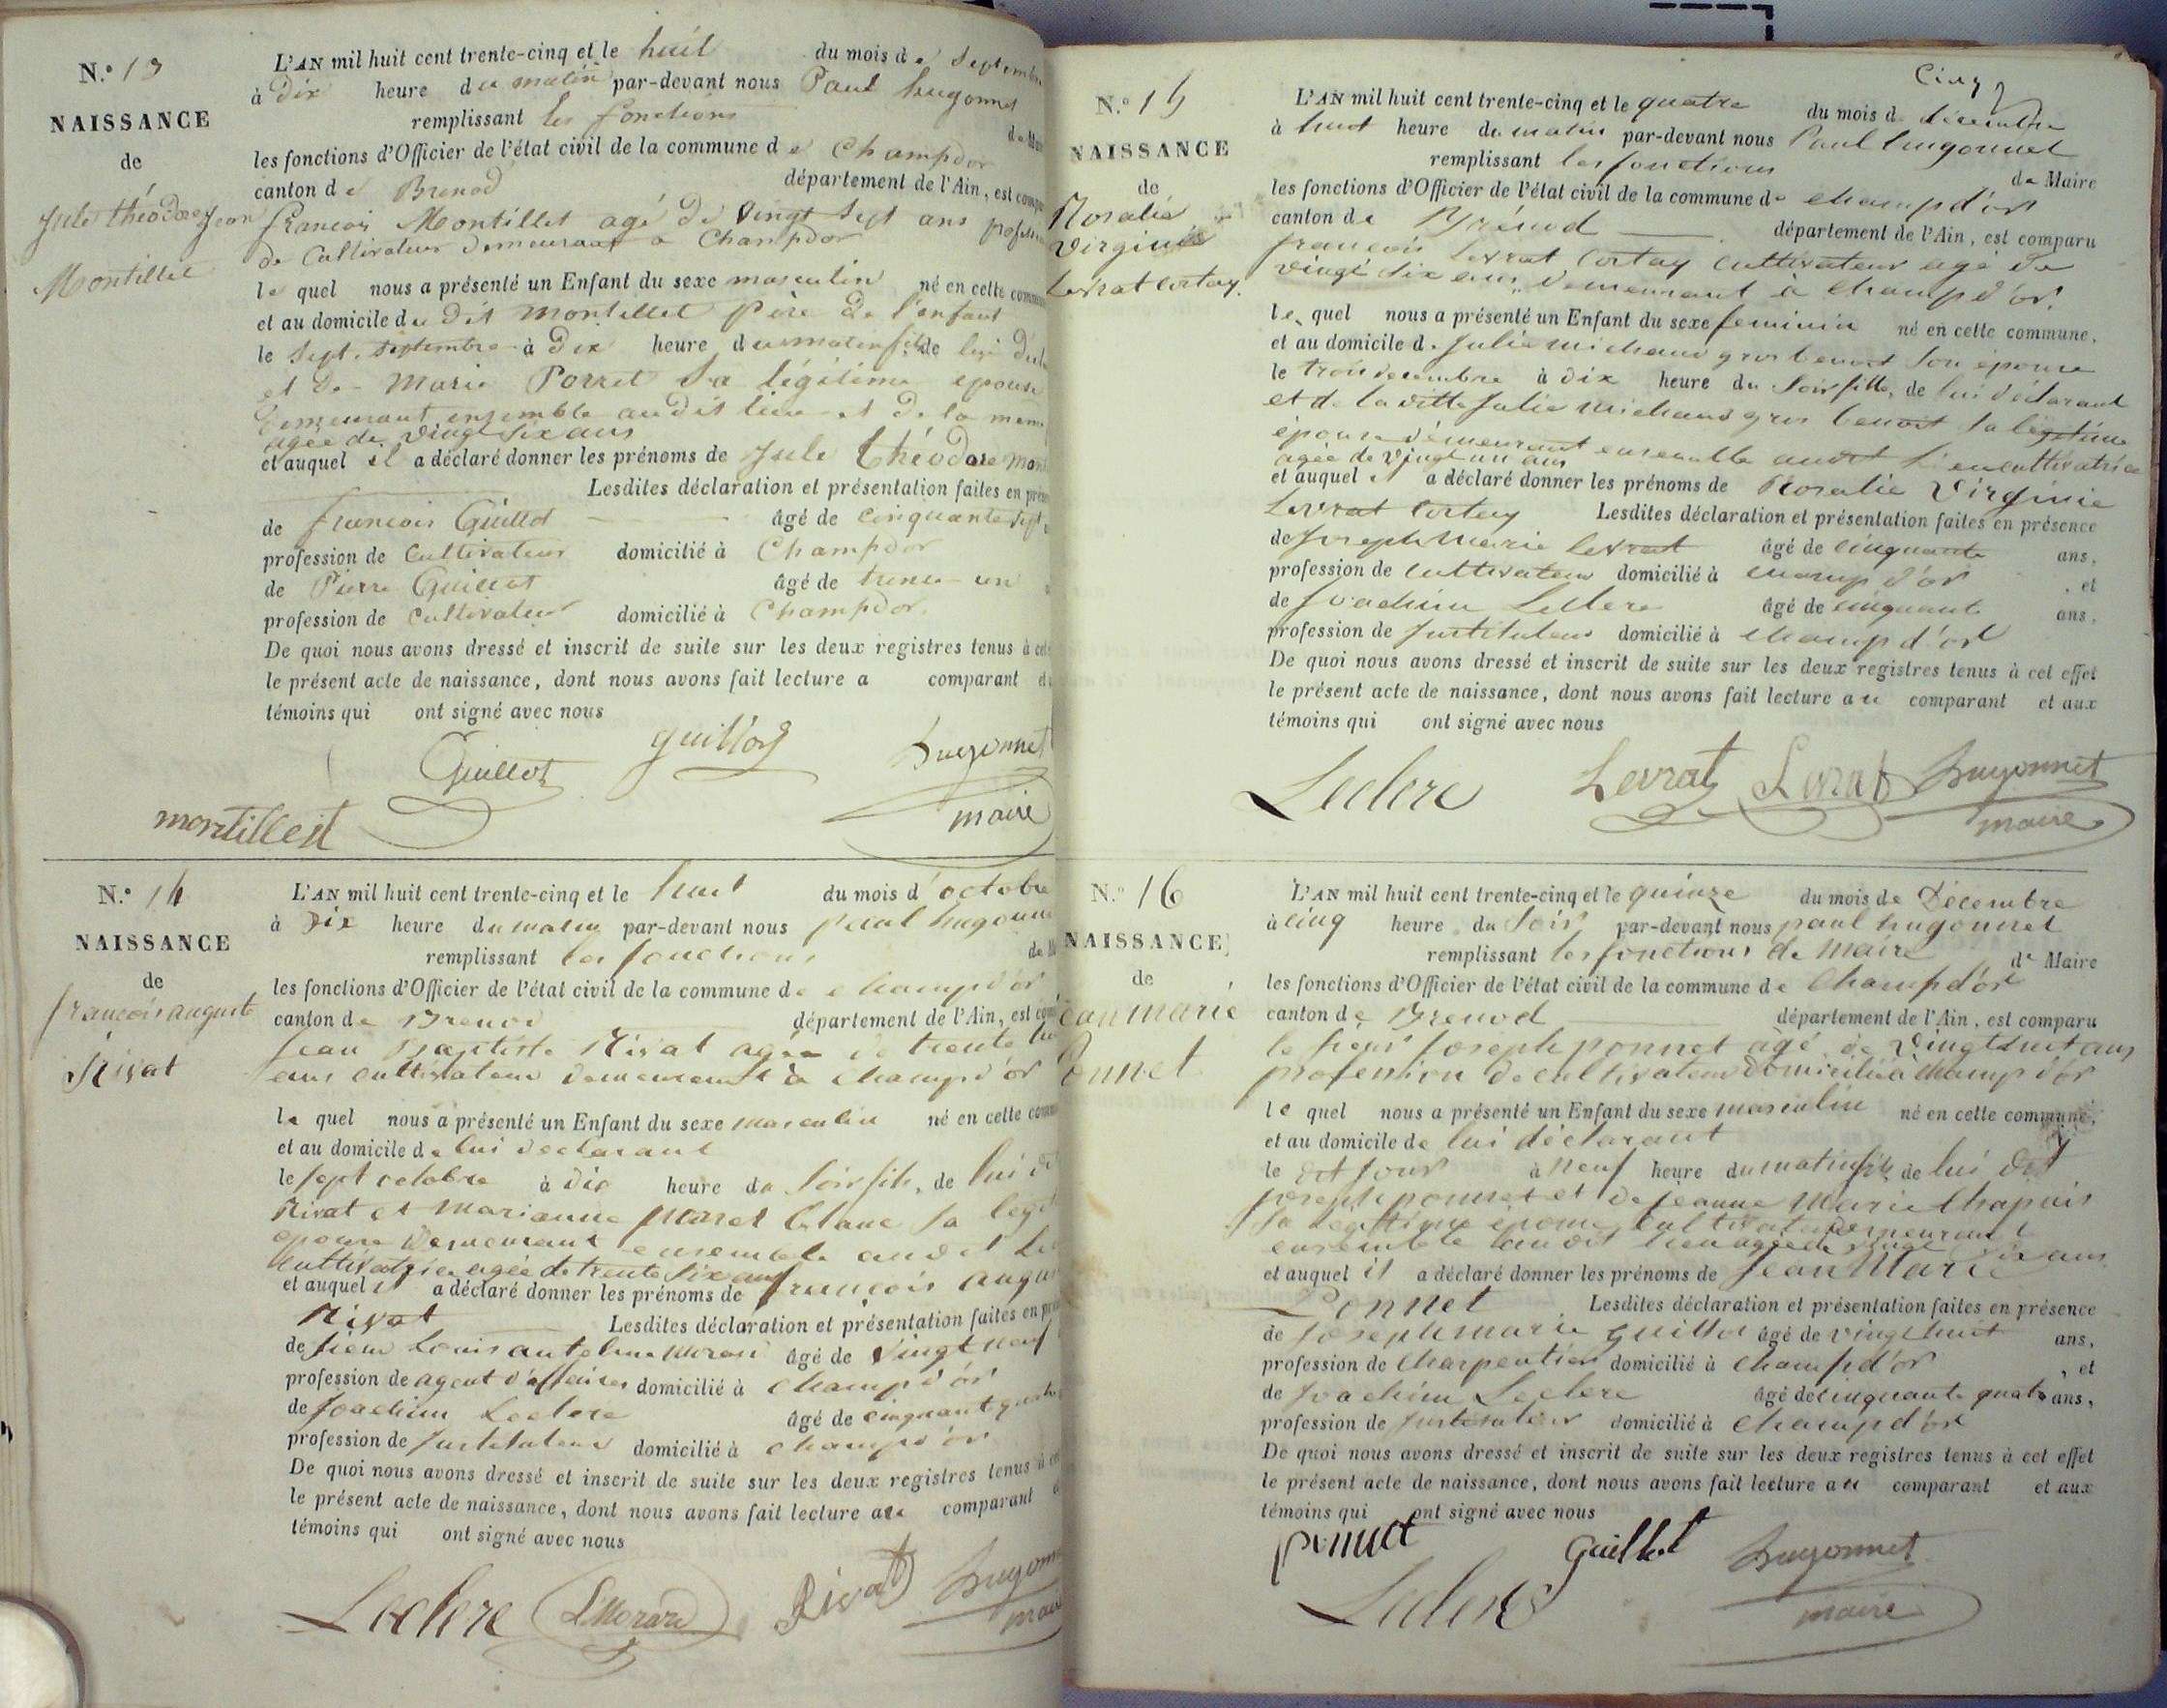 N.º 13
NAISSANCE
de
Jule théodore Jean
Montillet
L'AN mil huit cent trente-cinq et le huit du mois de Septembre
à Dix heure du matin par-devant nous Paul hugonnet
remplissant les fonctions de
les fonctions d'Officier de l'état civil de la commune de Champdor
canton de Brenod département de l'Ain, est
francois Montillet agé de vingt sept ans
de Cultivateur demeurant a Champdor
le quel nous a présenté un Enfant du sexe masculin né en cette
et au domicile du dit montillet père de l'enfant
le sept. septembre à Dix heure du matin fils de
et de Marie Porret Sa légitime epouse
demeurant ensemble audit lieu et de la
agée de vingt six ans
et auquel il a déclaré donner les prénoms de Jule théodore
Lesdites déclaration et présentation faites en
de francois Guillot âgé de cinquante sept
profession de Cultivateur domicilié à Champdor
de Pierre Guillot âgé de trente un
profession de Cultivateur domicilié à Champdor.
De quoi nous avons dressé et inscrit de suite sur les deux registres tenus à
le présent acte de naissance, dont nous avons fait lecture a comparant
témoins qui ont signé avec nous
Guillot guillot hugonnet
montillet maire
N.º 14
NAISSANCE
de
francois auguste
Rivat
L'AN mil huit cent trente-cinq et le huit du mois d'octobre
à Dix heure du matin par-devant nous paul
remplissant les fonctions
les fonctions d'Officier de l'état civil de la commune de champd'or
canton de Brenod département de l'Ain, est
Jean Baptiste Rivat agée de trente
ans cultivateur demeurant à champd'or
le quel nous a présenté un Enfant du sexe masculin né en cette
et au domicile de lui declarant
le sept octobre à dix heure du soir fils, de lui
Rivat et marianne blanc sa
epouse demeurant ensemble audit
cultivatrice agée de trente six ans
et auquel il a déclaré donner les prénoms de francois
Rivat Lesdites déclaration et présentation faites en
de sieur Louis antelme âgé de vingt neuf
profession de agent d'affaires domicilié à champd'or
de Joachim Leclere âgé de cinquant
profession de Instituteur domicilié à champd'or
De quoi nous avons dressé et inscrit de suite sur les deux registres tenus à
le présent acte de naissance, dont nous avons fait lecture au comparant
témoins qui ont signé avec nous
Leclere LMorard Rivat
N.º 15
NAISSANCE
de
Rosalie
Virginie
Levrat Cortay.
Cinq
L'AN mil huit cent trente-cinq et le quatre du mois de décembre
à huit heure du matin par-devant nous Paul hugonnet
remplissant les fonctions de Maire
les fonctions d'Officier de l'état civil de la commune de champd'or
canton de Brénod département de l'Ain, est comparu
francois Levrat Cortay cultivateur agé de
vingt six ans, demeurant à champd'or.
le quel nous a présenté un Enfant du sexe feminin né en cette commune,
et au domicile de Julie michaud gros benoit son épouse
le trois decembre à dix heure du soir fille, de lui déclarant
et de la ditte Julie michaud gros benoit sa légitime
épouse démeurant ensemble audit lieu cultivatrice
agée de vingt un ans
et auquel il a déclaré donner les prénoms de Rosalie Virginie
Levrat Cortay Lesdites déclaration et présentation faites en présence
de Joseph Marie Levrat âgé de cinquante ans,
profession de cultivateur domicilié à champd'or, et
de Joachim Leclere âgé de cinquante ans,
profession de Instituteur domicilié à champd'or
De quoi nous avons dressé et inscrit de suite sur les deux registres tenus à cet effet
le présent acte de naissance, dont nous avons fait lecture au comparant et aux
témoins qui ont signé avec nous
Leclere Levrat Levrat hugonnet
maire
N.º 16
NAISSANCE
de
Jean marie
Ponnet
L'AN mil huit cent trente-cinq et le quinze du mois de Décembre
à cinq heure du Soir par-devant nous paul hugonnet
remplissant les fonctions de maire de Maire
les fonctions d'Officier de l'état civil de la commune de Champd'or
canton de Brenod département de l'Ain, est comparu
le sieur Joseph ponnet agé de vingt huit ans
profession de cultivateur domicilié à champd'or
le quel nous a présenté un Enfant du sexe masculin né en cette commune,
et au domicile de lui déclarant
le dit jour à neuf heure du matin fils de lui dit
joseph ponnet et de jeanne Marie Chapuis
sa légitime épouse, demeurant
ensemble audit lieu agée de vingt six ans
et auquel il a déclaré donner les prénoms de Jean Marie
Ponnet. Lesdites déclaration et présentation faites en présence
de Joseph marie guillot âgé de vingt huit ans,
profession de Charpentier domicilié à Champd'or, et
de Joachim Leclere âgé de cinquante quatre ans,
profession de Instituteur domicilié à Champd'or
De quoi nous avons dressé et inscrit de suite sur les deux registres tenus à cet effet
le présent acte de naissance, dont nous avons fait lecture au comparant et aux
témoins qui ont signé avec nous
ponnet guillot hugonnet
Leclere maire